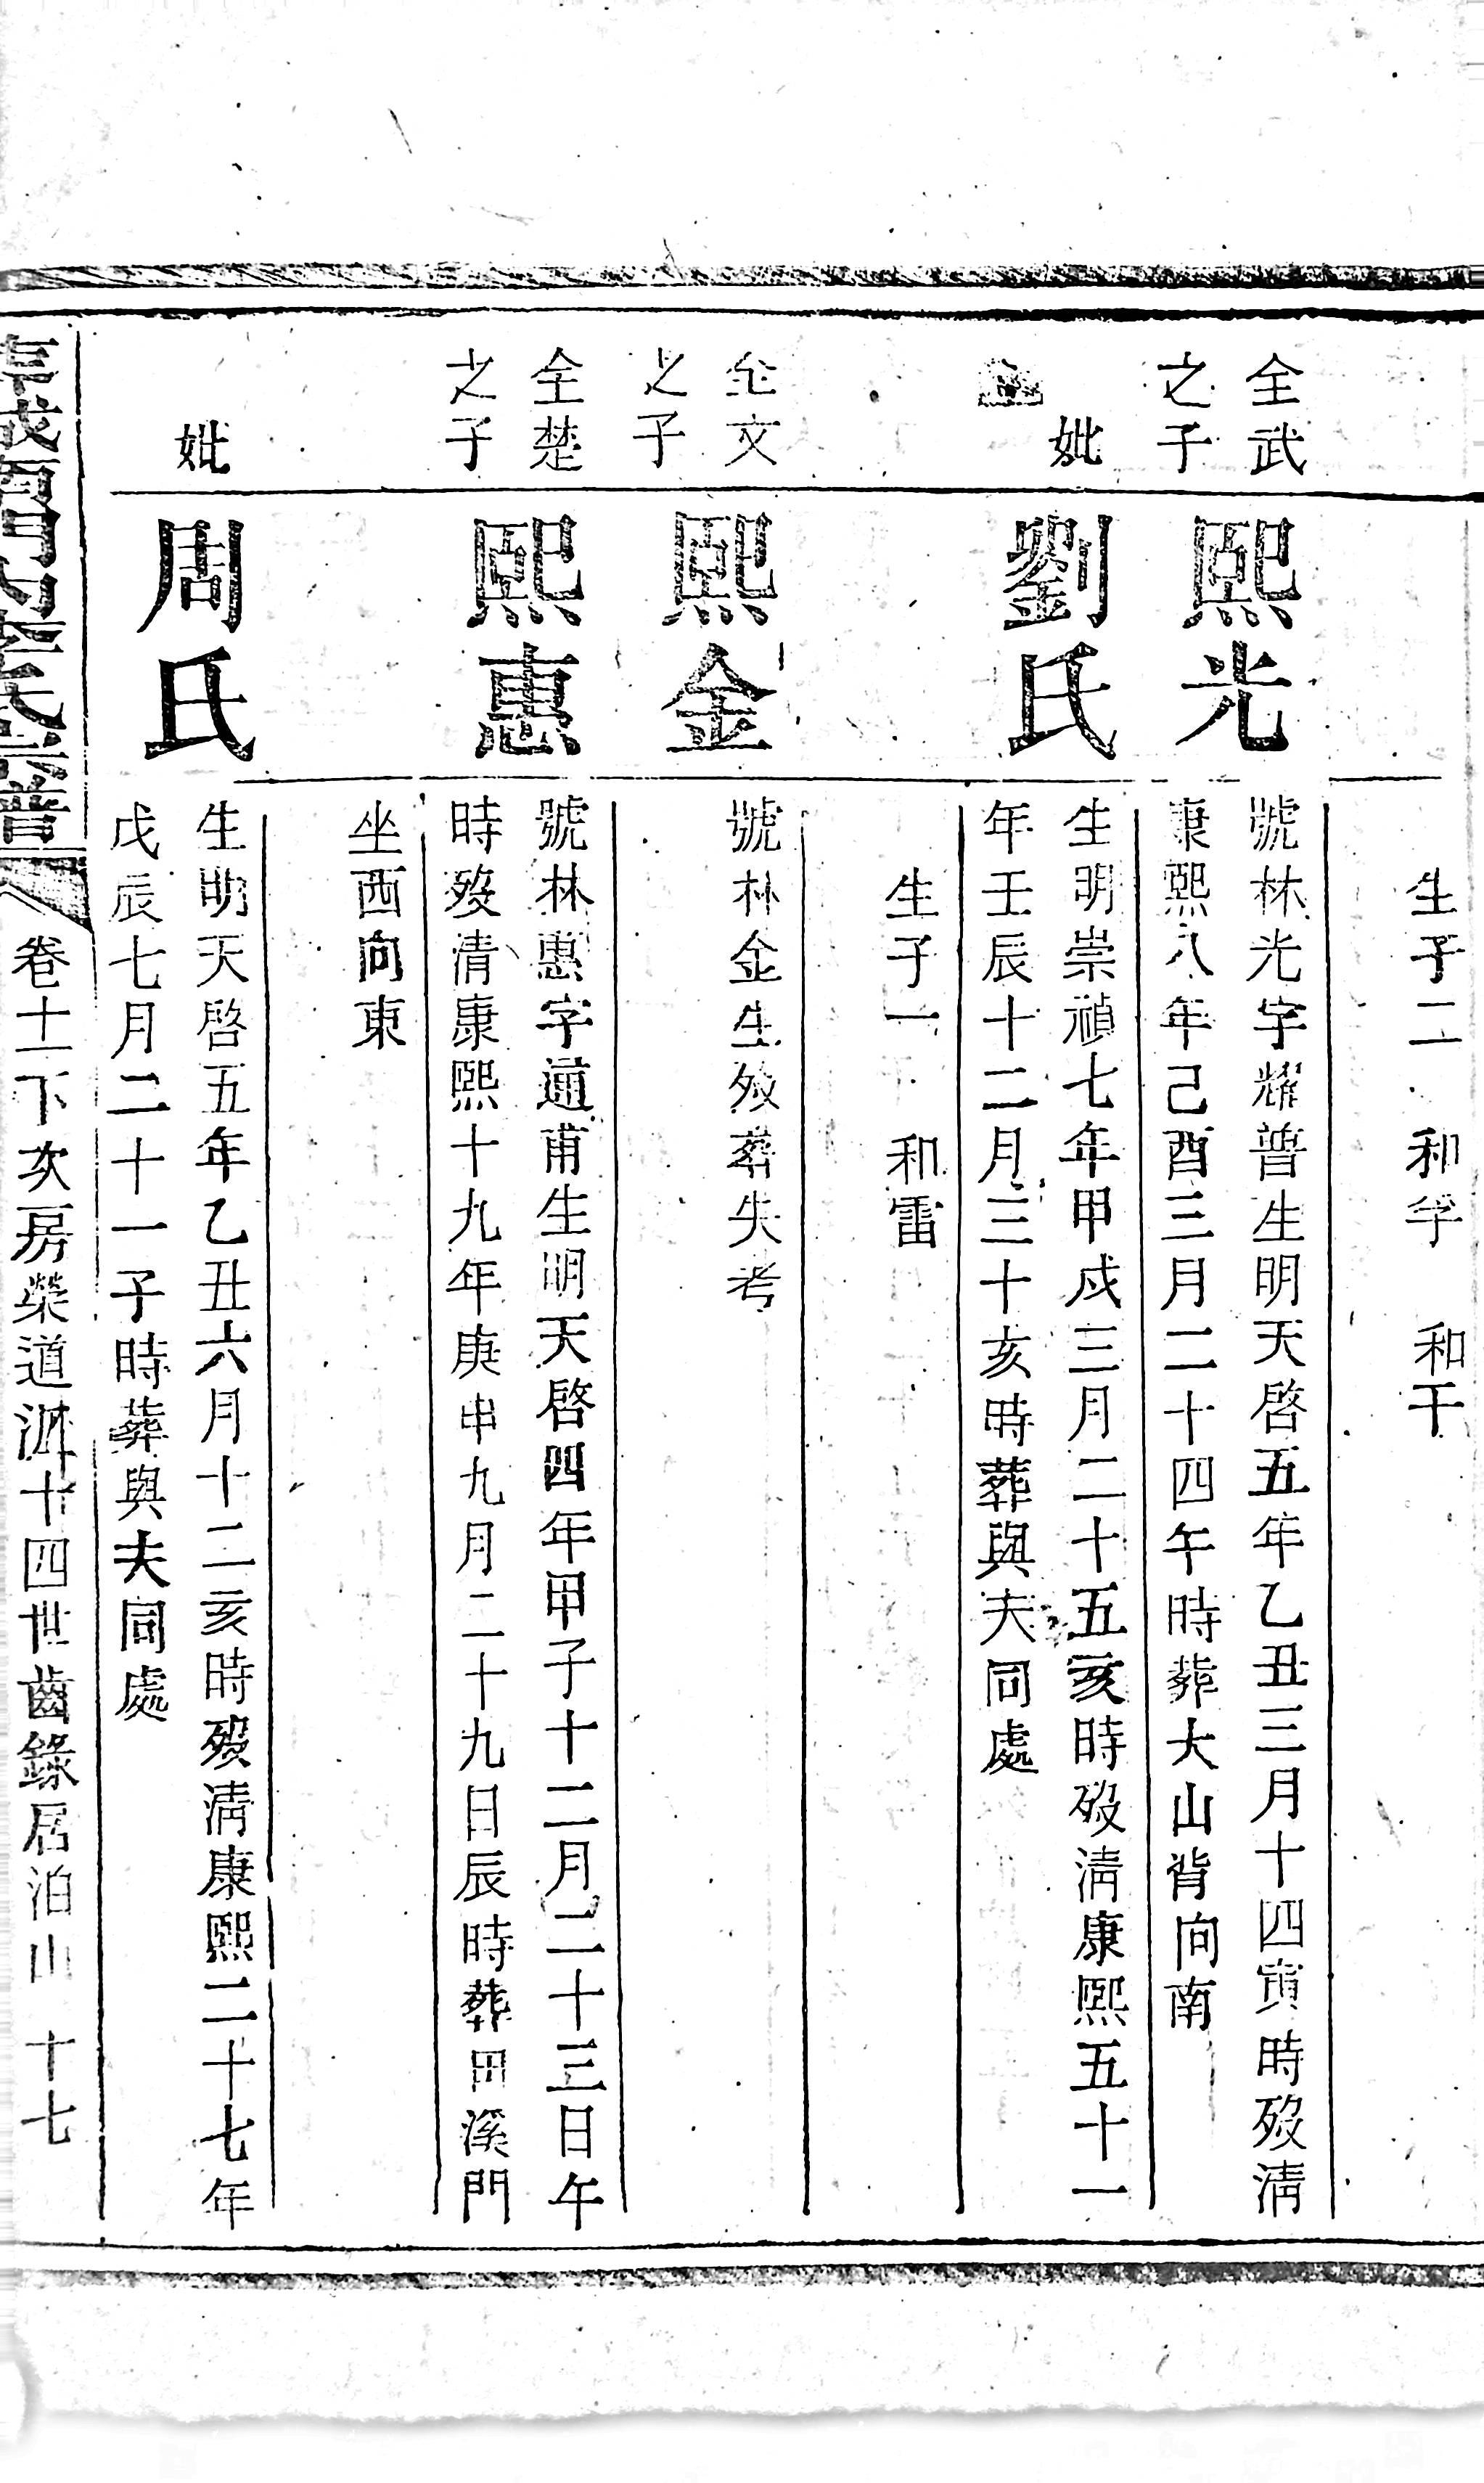 生子二 和孚 和干
全武
之子
熙光
號林光字耀普生明天啓五年乙丑三月十四寅時歿淸
康熙八年己酉三月二十四午時葬大山背向南
妣
劉氏
生明崇禎七年甲戍三月二十五亥時歿淸康熙五十一
年壬辰十二月三十亥時葬與夫同處
生子一 和雷
全文
之子
熙金
號林金生歿葬失考
全楚
之子
熙惠
號林惠字通甫生明天啓四年甲子十二月二十三日午
時歿淸康熙十九年庚申九月二十九日辰時葬田溪門
坐西向東
妣
周氏
生明天啓五年乙丑六月十二亥時歿淸康熙二十七年
戊辰七月二十一子時葬與夫同處
西門內李氏宗譜
卷十一下次房榮道派十四世齒錄居泊山 十七